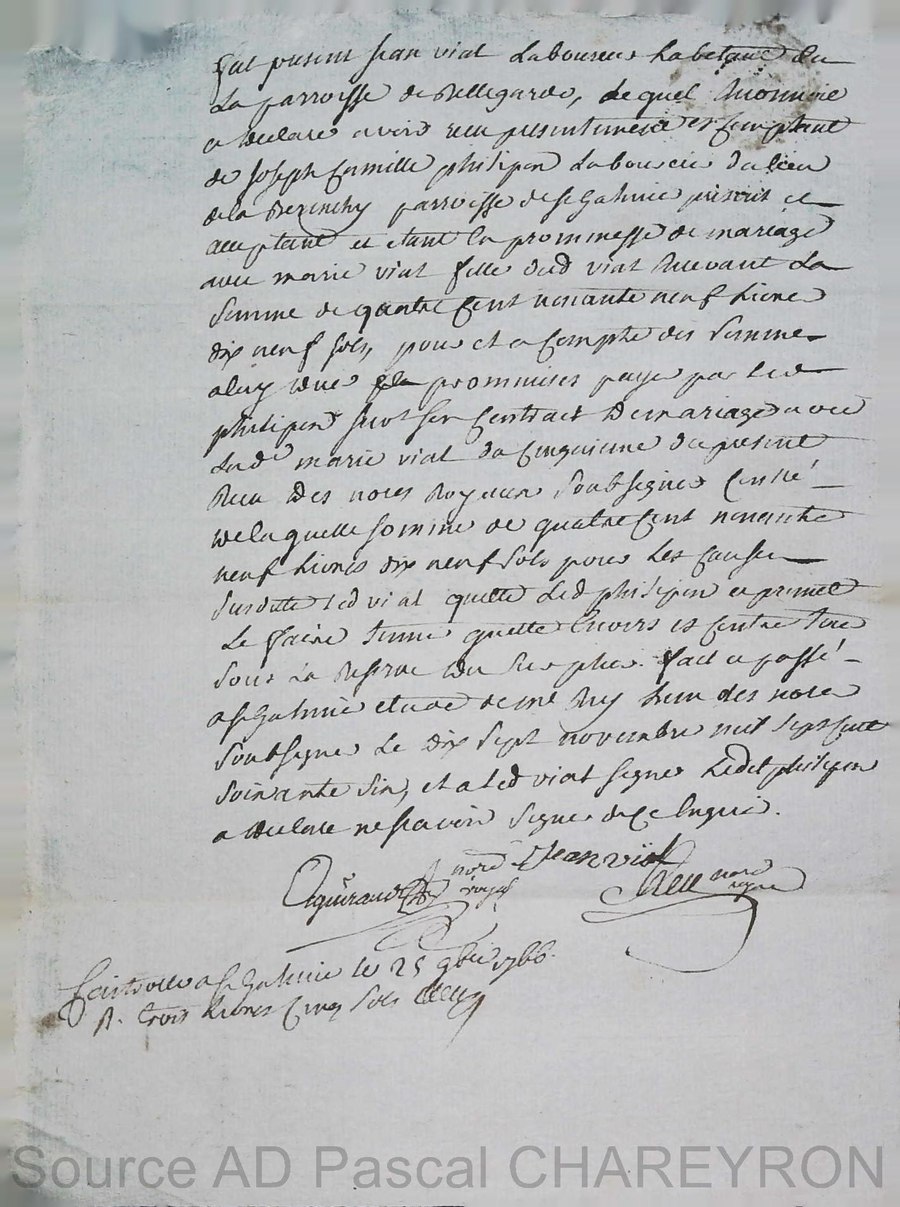 fut present Jean viat Laboureur habitant de
La parroisse de Bellegarde, Lequel
a declaré avoir recu presentement et Comptant
de Joseph Camille philipon Laboureur du lieu
de la parroisse de St Galmier present et
acceptant et etant En prommesse de mariage
avec marie viat fille dud viat Recevant La
Somme de quatre Cent nonante neuf Livre
dix neuf Sols, pour et a Compte des Somme
a luy due prommises payer par led
philipon Sur Son Contract de mariage avec
Lade marie viat du Cinquieme du present
Recu Des nores Royaux Soubsignes
de laquelle Somme de quatre Cent nonante
neuf Livres dix neuf Sols pour Les Cause
Susdite led viat quitte Led philipon et promet
Le faire tenir quitte Envers et Contre tous
Sous La Reserve du Surplus. fait et passé
a St Galmier etude de me Rey L'un des nore
Soubsigne Le dix Sept novembre mil Sept Cent
Soixante Six, et a led viat Signe Ledit philipon
a declaré ne Scavoir Signer de Ce Enquis.
Jean viat
Aguiraud nore royal Rey nore royal
Controlle a St Galmier le 25 9bre 1766
R. trois Livres Cinq Sols
Source AD Pascal CHAREYRON